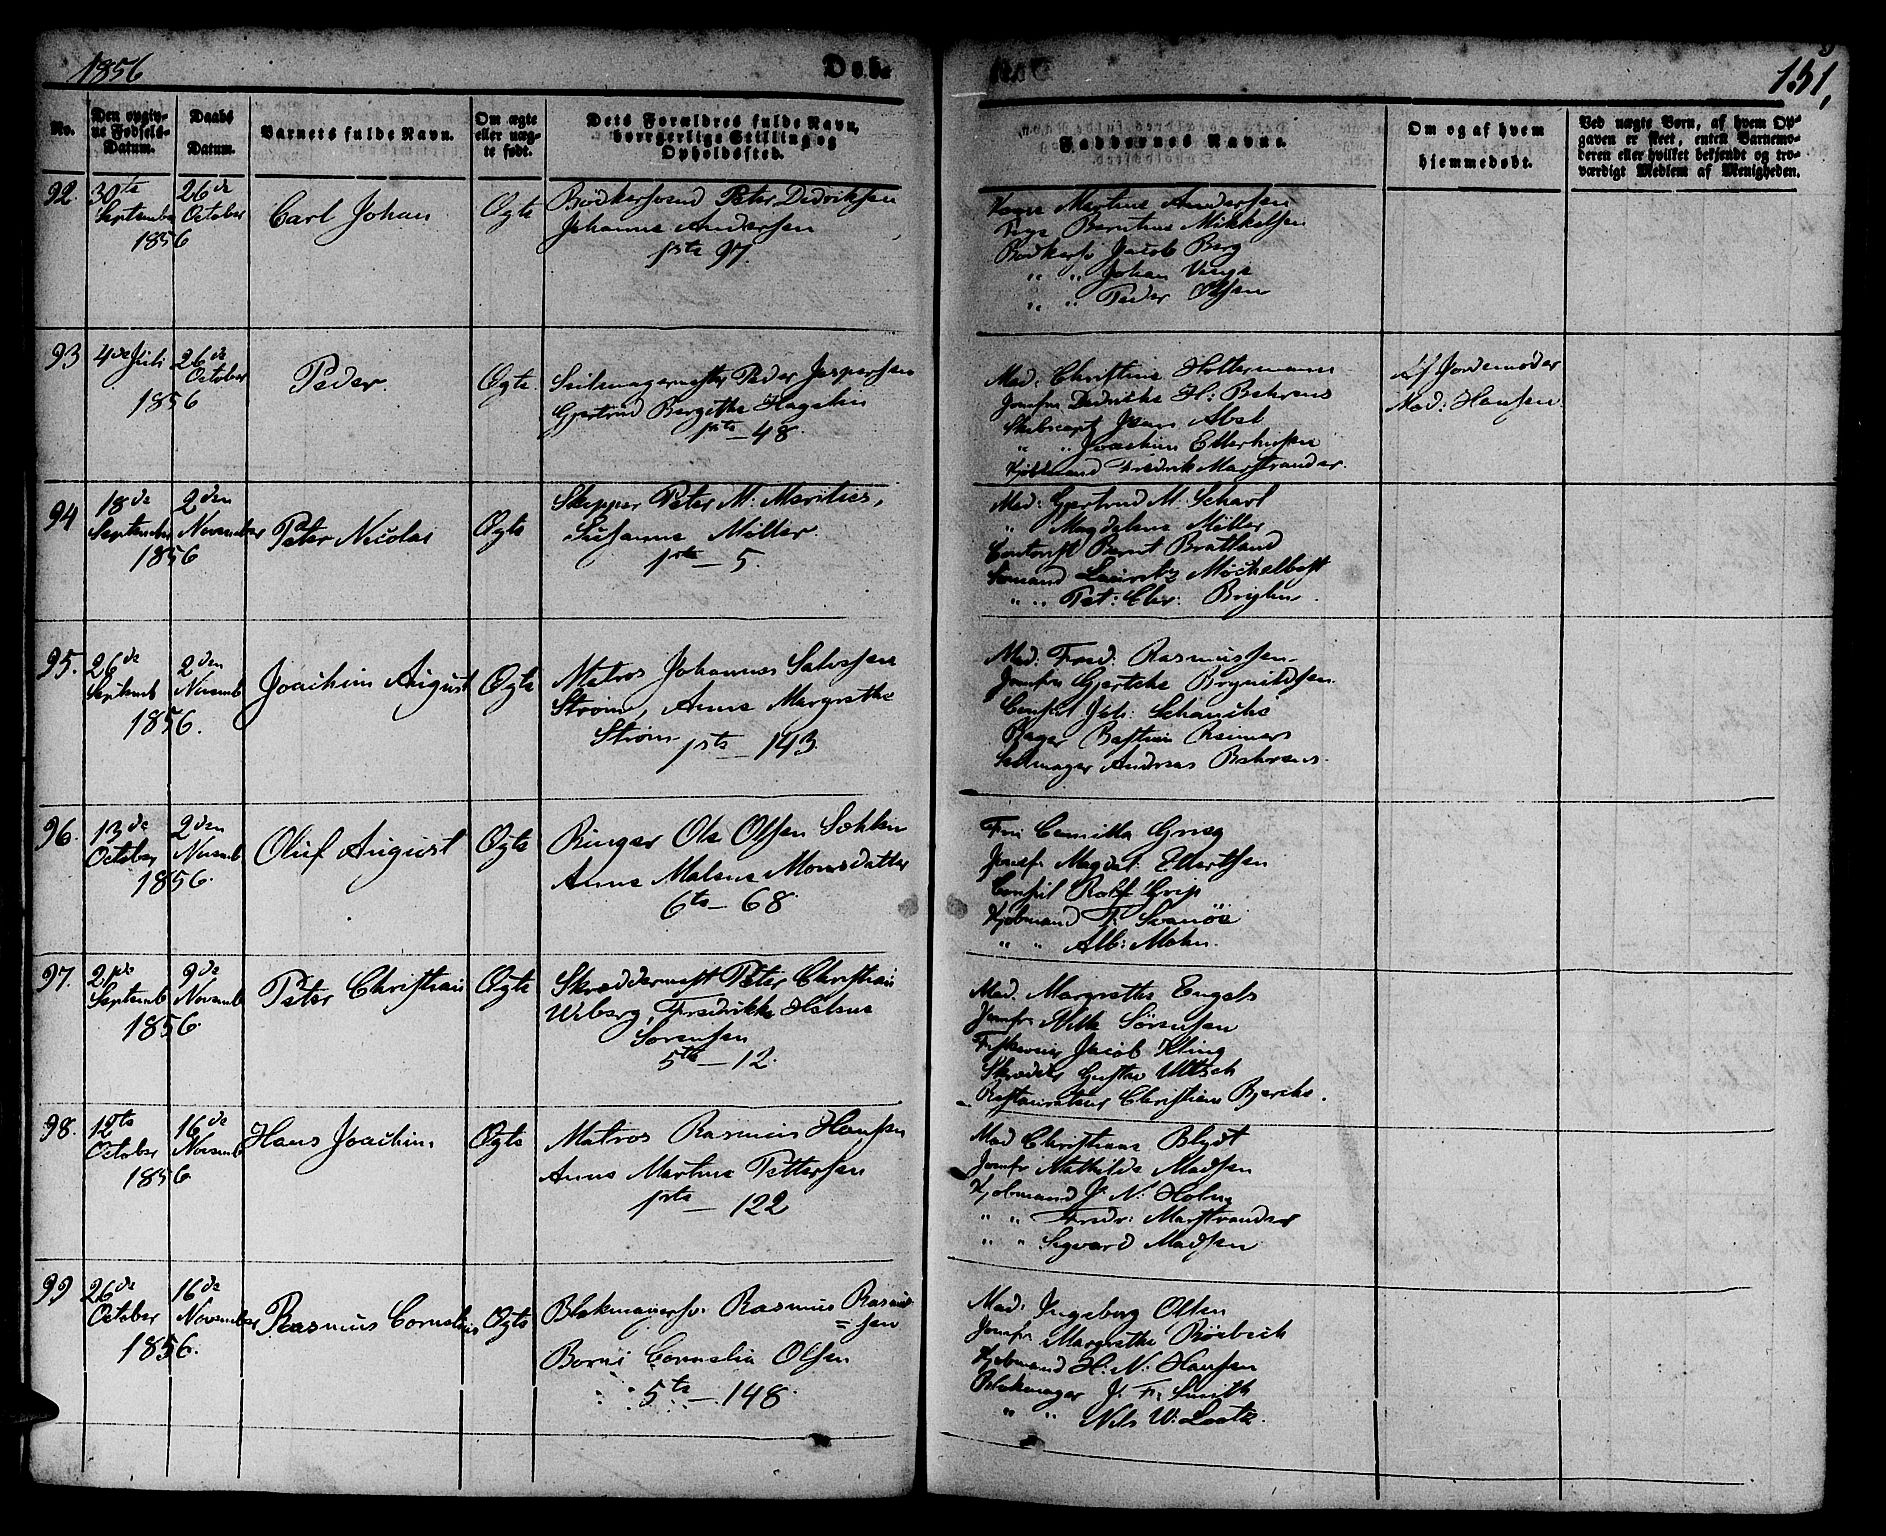 1856
Døb.
151,
No.
Den opgiv-
ne Fødsels-
Datum.
Daabs
Datum.
Barnets fulde Navn.
Om ægte
eller uæg-
te født.
Dets Forældres fulde Navn,
borgerlige Stilling og
Opholdssted.
Faddernes Navne.
Om og af hvem
hjemmedøbt.
Ved uægte Børn, af hvem Op-
gaven er skeet, enten Barnemo-
deren eller hvilket bekjendt og tro-
værdigt Medlem af Menigheden.
92. 30te
September
26de
October
1856
Carl Johan
Ægte
Bødkersvend Peter Dedriksen
Johanne Andersen
1ste 97.
Martine Andersen
Pige Berntine Mikkelsen
Bødkersv Jacob Berg
" " Johan
" " Peder Olsen
93 4de Juli
26de
October
1856
Peder
Ægte
Seilmagermester Peder Jespersen
Gjertrud Bergithe
1ste – 48.
Mad: Christine Holtermann
Jomfru Dedricke H: Behrens
Skibscapt Abel
" " Joachim
Kjøbmand Fredrik Marstrander.
Af Jordemoder
Mad: Hansen.
94 18de
September
2den
November
1856
Peter Nicolai
Ægte
Skipper Peter M.
Susanne Möller.
1ste – 5.
Mad: Gjertrud M.
" Magdalene Möller
Contorist Bernt Bratland
Lauritz
" " Pet: Chr.
95. 26de
Septemb
2den
Novemb
1856.
Joachim August
Ægte
Matros Johannes Salvesen
Strøm, Anne Margrethe
Strøm 1ste – 143.
Mad: Fred. Rasmussen
Jomfru
Consul Joh:
Bager Bastian
Seilmager Andreas Behrens.
96. 13de
October
2den
Novemb
1856.
Oluf August
Ægte
Ringer Ole Olsen
Anne Malene Monsdatter
6te – 68.
Frü Camilla Grieg
Jomfr Magdal. Ellertsen
Consul Rolf Grip
Kjøbmand F. Svanöe
" " Alb: Mohn.
97.
Septemb
9de
Novemb
1856.
Peter Christian
Ægte
Skreddermest Peter Christian
Wiberg, Fredrikke Helene
Sørensen
5te – 12.
Mad. Margrethe Engels
Jomfr Sörensen
Jacob Kling
Gustav
Restaurateur Christian
98. 12te
October
16de
Novemb
1856
Hans Joachim.
Ægte
Matros Rasmus Hansen
Anne Martine Pettersen
1ste – 122
Mad Christiane Blydt
Jomfr Mathilde Madsen
Kjøbmand J. N. Holm
" " Fredr: Marstrander
" " Sigvard Madsen
99 26de
October
16de
November
1856.
Rasmus Cornelius
Ægte
Blokmagersv: Rasmus Rasmus
= sen
Cornelia Olsen
5te – 148.
Mad: Ingeborg Olsen
Jomfr Margrethe
Kjøbmand H. N. Hansen
Blokmager J. Fr. Smith
" " Nils W.